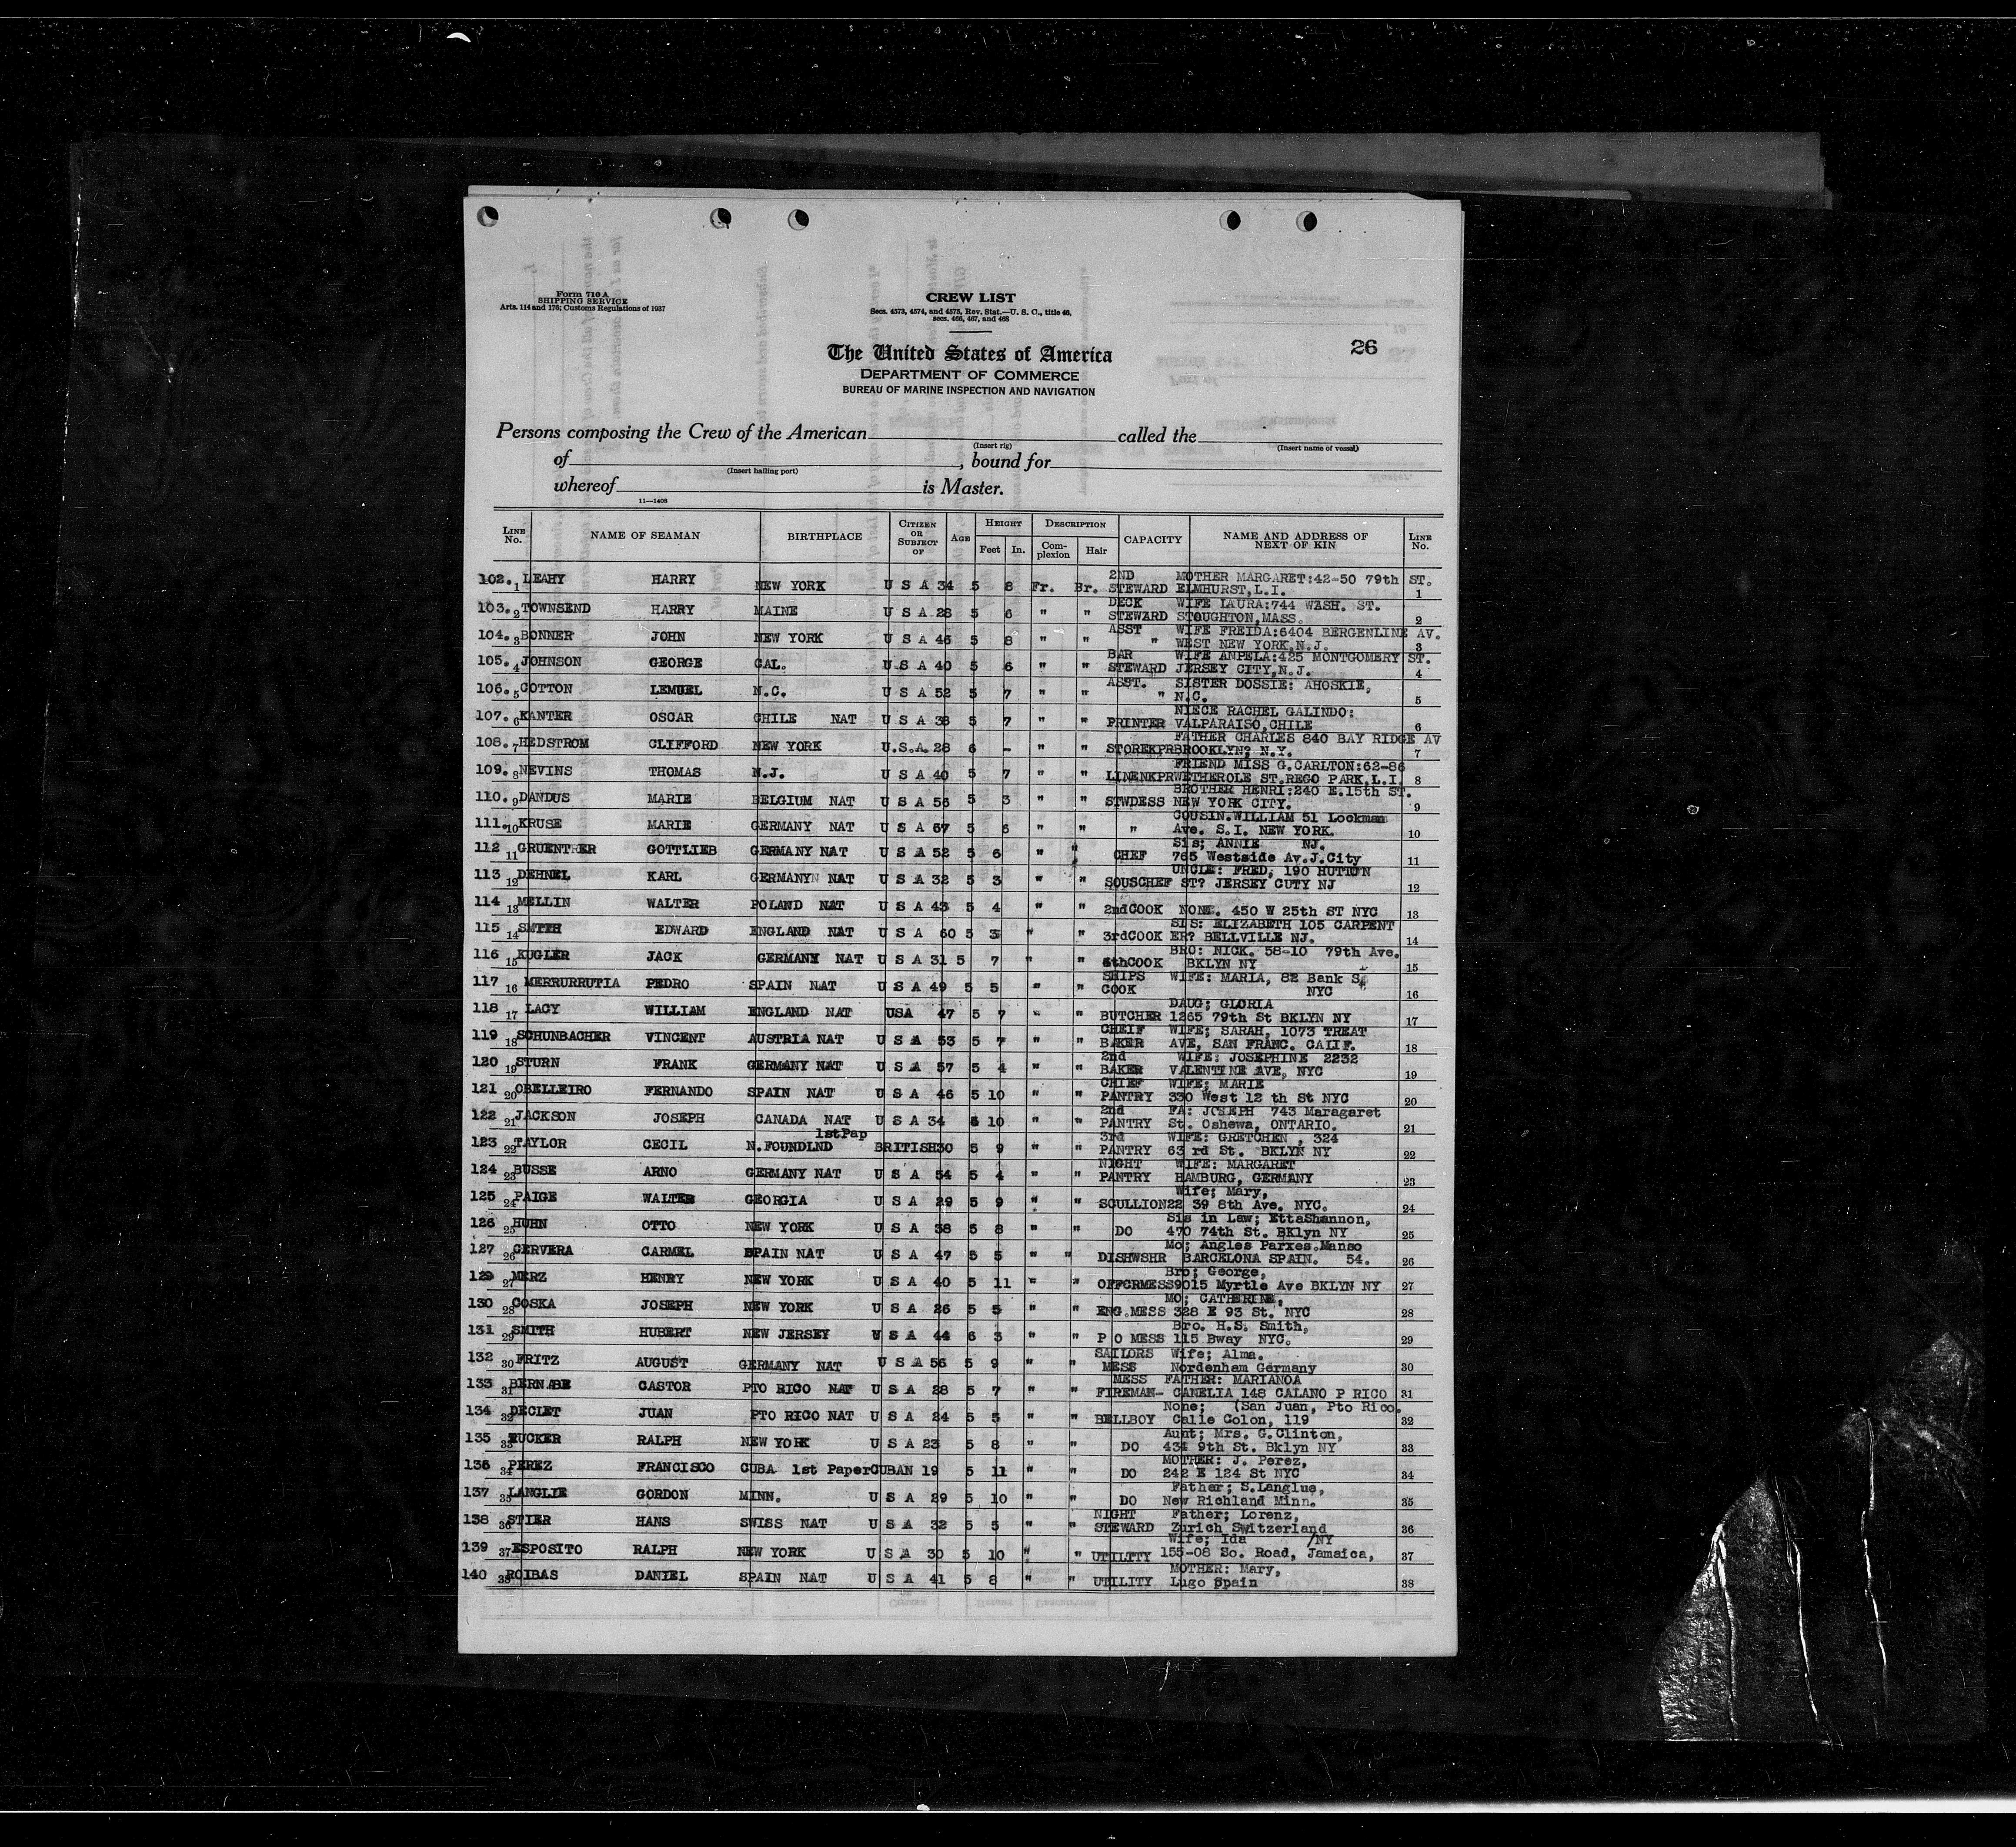 Form 710 A
SHIPPING SERVICE
Arts. 114 and 176; Customs Regulations of 1937
CREW LIST
Secs. 4573, 4574, and 4575, Rev. Stat.—U. S. C., title 46,
secs. 466, 467, and 468
26
The United States of America
DEPARTMENT OF COMMERCE
BUREAU OF MARINE INSPECTION AND NAVIGATION
Persons composing the Crew of the American called the
(Insert rig) (Insert name of vessel)
of , bound for
(Insert hailing port)
whereof is Master.
11—1408
LINE No. NAME OF SEAMAN BIRTHPLACE CITIZEN OR SUBJECT OF AGE HEIGHT Feet In. DESCRIPTION Complexion Hair CAPACITY NAME AND ADDRESS OF NEXT OF KIN LINE No.
2ND MOTHER MARGARET:42-50 79th ST.
102. 1 LEAHY HARRY NEW YORK U S A 34 5 8 Fr. Br. STEWARD ELMHURST,L.I. 1
DECK WIFE LAURA:744 WASH. ST.
103. 2 TOWNSEND HARRY MAINE U S A 28 5 6 " " STEWARD STOUGHTON,MASS. 2
ASST WIFE FREIDA:6404 BERGENLINE AV.
104. 3 BONNER JOHN NEW YORK U S A 46 5 8 " " " WEST NEW YORK,N.J. 3
BAR WIFE ANPELA:425 MONTGOMERY ST.
105. 4 JOHNSON GEORGE CAL. U S A 40 5 6 " " STEWARD JERSEY CITY,N.J. 4
ASST. SISTER DOSSIE: AHOSKIE,
106. 5 COTTON LEMUEL N.C. U S A 52 5 7 " " " N.C. 5
NIECE RACHEL GALINDO:
107. 6 KANTER OSCAR CHILE NAT U S A 38 5 7 " " PRINTER VALPARAISO,CHILE 6
FATHER CHARLES 840 BAY RIDGE AV
108. 7 HEDSTROM CLIFFORD NEW YORK U.S.A. 28 6 - " " STOREKPR BROOKLYN? N.Y. 7
FRIEND MISS G.CARLTON:62-86
109. 8 NEVINS THOMAS N.J. U S A 40 5 7 " " LINENKPR WETHEROLE ST.REGO PARK,L.I. 8
BROTHER HENRI:240 E.15th ST.
110. 9 DANDUS MARIE BELGIUM NAT U S A 56 5 3 " " STWDESS NEW YORK CITY. 9
COUSIN.WILLIAM 51 Lockman
111. 10 KRUSE MARIE GERMANY NAT U S A 67 5 6 " " " Ave. S.I. NEW YORK. 10
Sis; ANNIE NJ.
112 11 GRUENTRER GOTTLIEB GERMANY NAT U S A 52 5 6 " " CHEF 765 Westside Av.J.City 11
UNCLE: FRED, 190 HUTTON
113 12 DEHNEL KARL GERMANYN NAT U S A 32 5 3 " " SOUSCHEF ST? JERSEY CUTY NJ 12
114 13 MELLIN WALTER POLAND NAT U S A 43 5 4 " " 2ndCOOK NONE. 450 W 25th ST NYC 13
SIS: ELIZABETH 105 CARPENT
115 14 SMTTH EDWARD ENGLAND NAT U S A 60 5 3 " " 3rdCOOK ER? BELLVILLE NJ. 14
BRO: NICK. 58-10 79th Ave.
116 15 KUGLER JACK GERMANY NAT U S A 31 5 7 " " 4thCOOK BKLYN NY 15
SHIPS WIFE: MARIA, 82 Bank St
117 16 MERRURRUTIA PEDRO SPAIN NAT U S A 49 5 5 " " COOK NYC 16
DAUG; GLORIA
118 17 LACY WILLIAM ENGLAND NAT USA 47 5 7 " " BUTCHER 1265 79th St BKLYN NY 17
CHEIF WIFE; SARAH, 1073 TREAT
119 18 SCHUNBACHER VINCENT AUSTRIA NAT U S A 53 5 7 " " BAKER AVE, SAN FRANC. CALIF. 18
2nd WIFE: JOSEPHINE 2232
120 19 STURN FRANK GERMANY NAT U S A 57 5 4 " " BAKER VALENTINE AVE, NYC 19
CHIEF WIFE; MARIE
121 20 OBELLEIRO FERNANDO SPAIN NAT U S A 46 5 10 " " PANTRY 330 West 12 th St NYC 20
2nd FA: JOSEPH 743 Maragaret
122 21 JACKSON JOSEPH CANADA NAT U S A 34 6 10 " " PANTRY St. Oshewa, ONTARIO. 21
1stPap 3rd WIFE: GRETCHEN , 324
123 22 TAYLOR CECIL N.FOUNDLND BRITISH 30 5 9 " " PANTRY 63 rd St. BKLYN NY 22
NIGHT WIFE: MARGARET
124 23 BUSSE ARNO GERMANY NAT U S A 54 5 4 " " PANTRY HAMBURG, GERMANY 23
Wife; Mary,
125 24 PAIGE WALTER GEORGIA U S A 29 5 9 " " SCULLION 22 39 8th Ave. NYC. 24
Sis in Law; EttaShannon,
126 25 HUHN OTTO NEW YORK U S A 38 5 8 " " DO 470 74th St. BKlyn NY 25
Mo; Angles Parxes.Manso
127 26 CERVERA CARMEL SPAIN NAT U S A 47 5 5 " " DISHWSHR BARCELONA SPAIN. 54. 26
Bro; George,
129 27 MERZ HENRY NEW YORK U S A 40 5 11 " " OFFCRMESS 9015 Myrtle Ave BKLYN NY 27
MO; CATHERINE,
130 28 COSKA JOSEPH NEW YORK U S A 26 5 5 " " ENG.MESS 328 E 93 St. NYC 28
Bro. H.S. Smith,
131 29 SMITH HUBERT NEW JERSEY U S A 44 6 3 " " P O MESS 115 Bway NYC. 29
SAILORS Wife; Alma.
132 30 FRITZ AUGUST GERMANY NAT U S A 56 5 9 " " MESS Nordenham Germany 30
MESS FATHER: MARIANOA
133 31 BERNABE CASTOR PTO RICO NAT U S A 28 5 7 " " FIREMAN- CANELIA 148 CALANO P RICO 31
None; (San Juan, Pto Rico.
134 32 DECLET JUAN PTO RICO NAT U S A 24 5 5 " " BELLBOY Calie Colon, 119 32
Aunt; Mrs. G.Clinton,
135 33 RALPH NEW YORK U S A 23 5 8 " " DO 434 9th St. Bklyn NY 33
MOTHER: J. Perez,
136 34 PEREZ FRANCISCO CUBA 1st Paper CUBAN 19 5 11 " " DO 242 E 124 St NYC 34
Father; S.Langlue,
137 35 LANGLIE GORDON MINN. U S A 29 5 10 " " DO New Richland Minn. 35
NIGHT Father; Lorenz,
138 36 STIER HANS SWISS NAT U S A 32 5 5 " " STEWARD Zurich Switzerland 36
Wife; Ida /NY
139 37 ESPOSITO RALPH NEW YORK U S A 30 5 10 " " UTILITY 155-08 So. Road, Jamaica, 37
MOTHER: Mary,
140 38 ROIBAS DANIEL SPAIN NAT U S A 41 5 8 " " UTILITY Lugo Spain 38